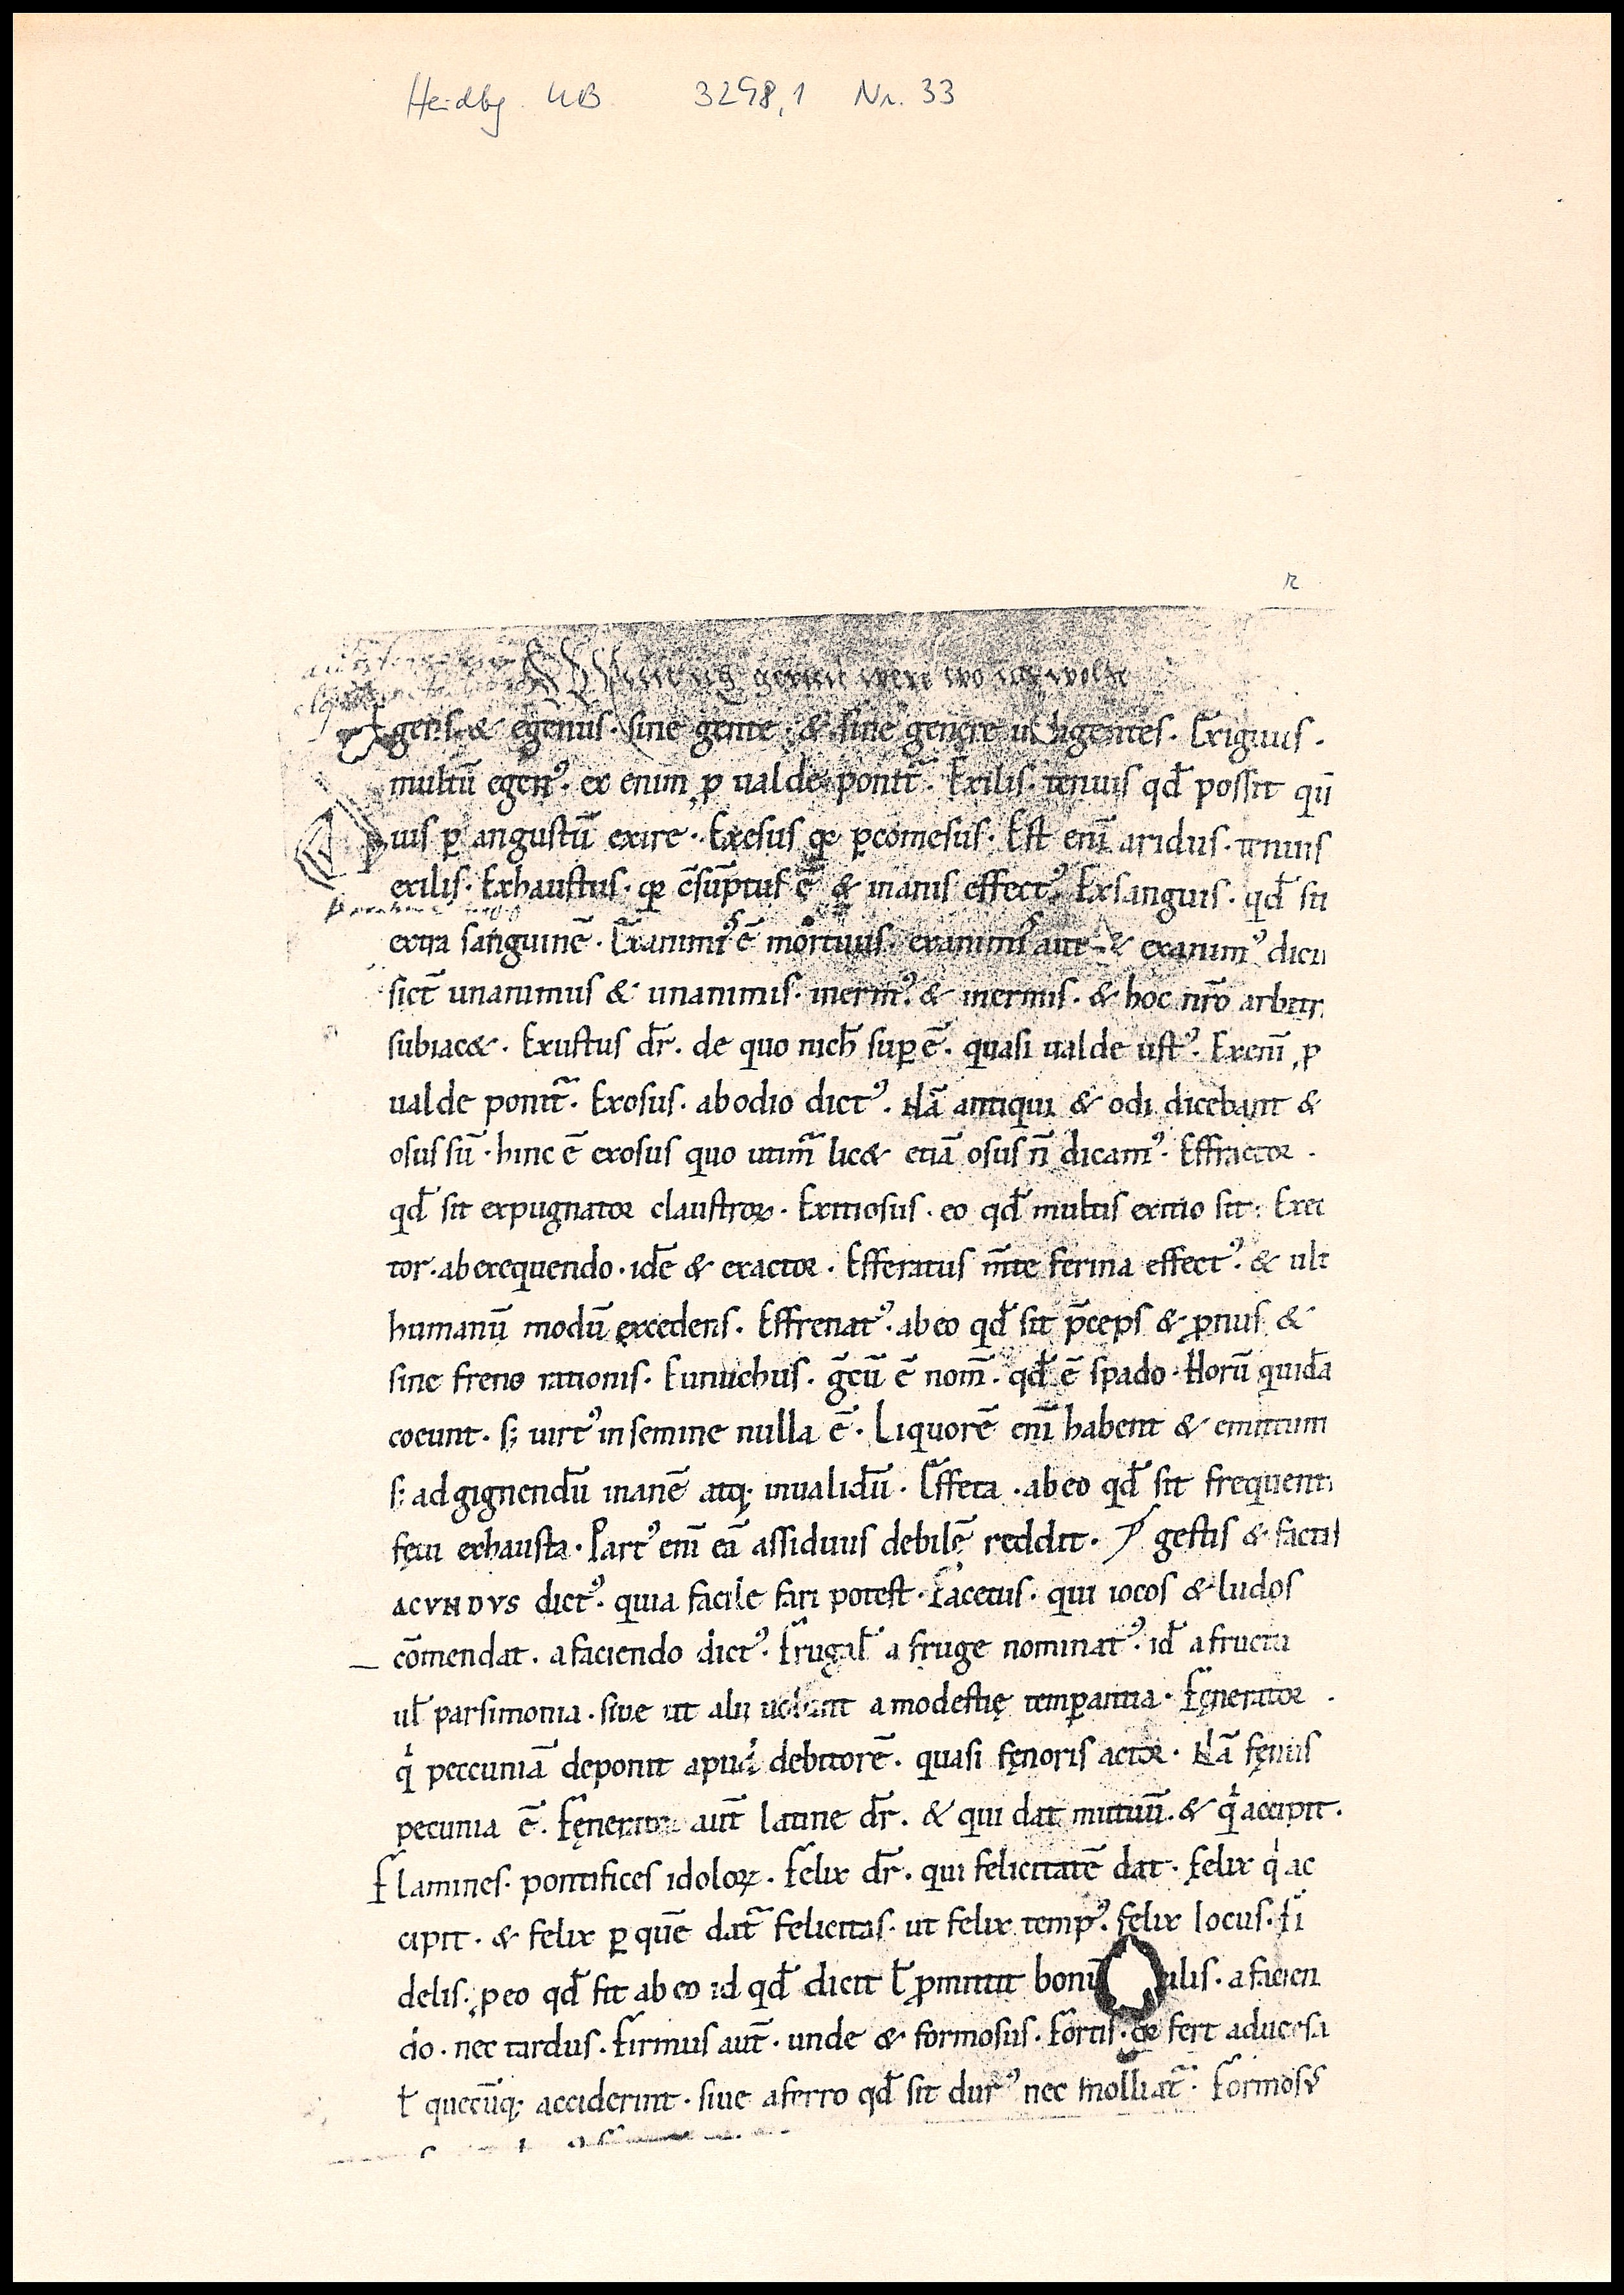 Heidbg. UB 3298,1 Nr. 33
r
gerent were wo wolde
Egens. & egenus. sine gente. & sine genere indigentes. Exiguus.
multū egenꝰ. ex enim ꝓ ualde ponit᷑. Exilis. tenuis qđ possit qū
uis ꝑ angustū exire. Exesus qꝛ ꝑcomesus. Est enī aridus. tenuis
exilis. Exhaustus. qꝛ c̄sūptus ē & inanis effectꝰ. Exsanguis. qđ sit
extra sanguinē. Exanimꝰ ē mortuus. exanimis aut̄ & exanimꝰ dici
sict̄ unanimus & unanimis. inermꝰ. & inermis. & hoc nr̄o arbitr
subiac&. Exustus dr̄. de quo nich̄ suꝑ ē. quasi ualde ustꝰ. Ex enī ꝓ
ualde ponit᷑. Exosus. ab odio dictꝰ. Nā antiqui & odi dicebant &
osus sū. hinc ē exosus quo utim᷑ lic& etiā osus n̄ dicamꝰ. Effractor.
qđ sit expugnator claustroꝝ. Exitiosus. eo qđ multis exitio sit. Exec
tor. ab exequendo. idē & exactor. Efferatus m̄te ferina effectꝰ. & ult
humanū modū excedens. Effrenatꝰ. ab eo qđ sit p̄ceps & ꝓnus &
sine freno rationis. Eunuchus. gc̄ū ē nom̄. qđ ē spado. Horū quidā
coeunt. sꝫ uirtꝰ in semine nulla ē. Liquorē enī habent & emittunt
sꝫ ad gignendū inanē atqꝫ inualidū. Effeta. ab eo qđ sit frequenti
fętu exhausta. Partꝰ enī eā assiduus debilē reddit. gestis & factis
ACVNDVS dictꝰ. quia facile fari potest. Facetus. qui iocos & ludos
cōmendat. a faciendo dictꝰ. Frugal̄ a fruge nominatꝰ. id̄ a fructu
ul̄ parsimonia. siue ut alii uolunt a modestię temꝑantia. Fęnerator.
qⁱ peccuniā deponit apud debitorē. quasi fęnoris actor. Nā fęnus
pecunia ē. Fęnerator aut̄ latine dr̄. & qui dat mutuū. & qⁱ accipit.
Flamines. pontifices idoloꝝ. Felix dr̄. qui felicitatē dat. felix qⁱ ac
cipit. & felix ꝑ quē dat᷑ felicitas. ut felix tempꝰ. felix locus. Fi
delis. ꝓ eo qđ fit ab eo id qđ dicit ł ꝓmittit bonū ilis. a facien
do. nec tardus. Firmus aut̄. unde & formosus. Fortis. qꝛ fert aduersa
ł quecūqꝫ acciderint. siue a ferro qđ sit durꝰ nec molliat᷑. Formosꝰ